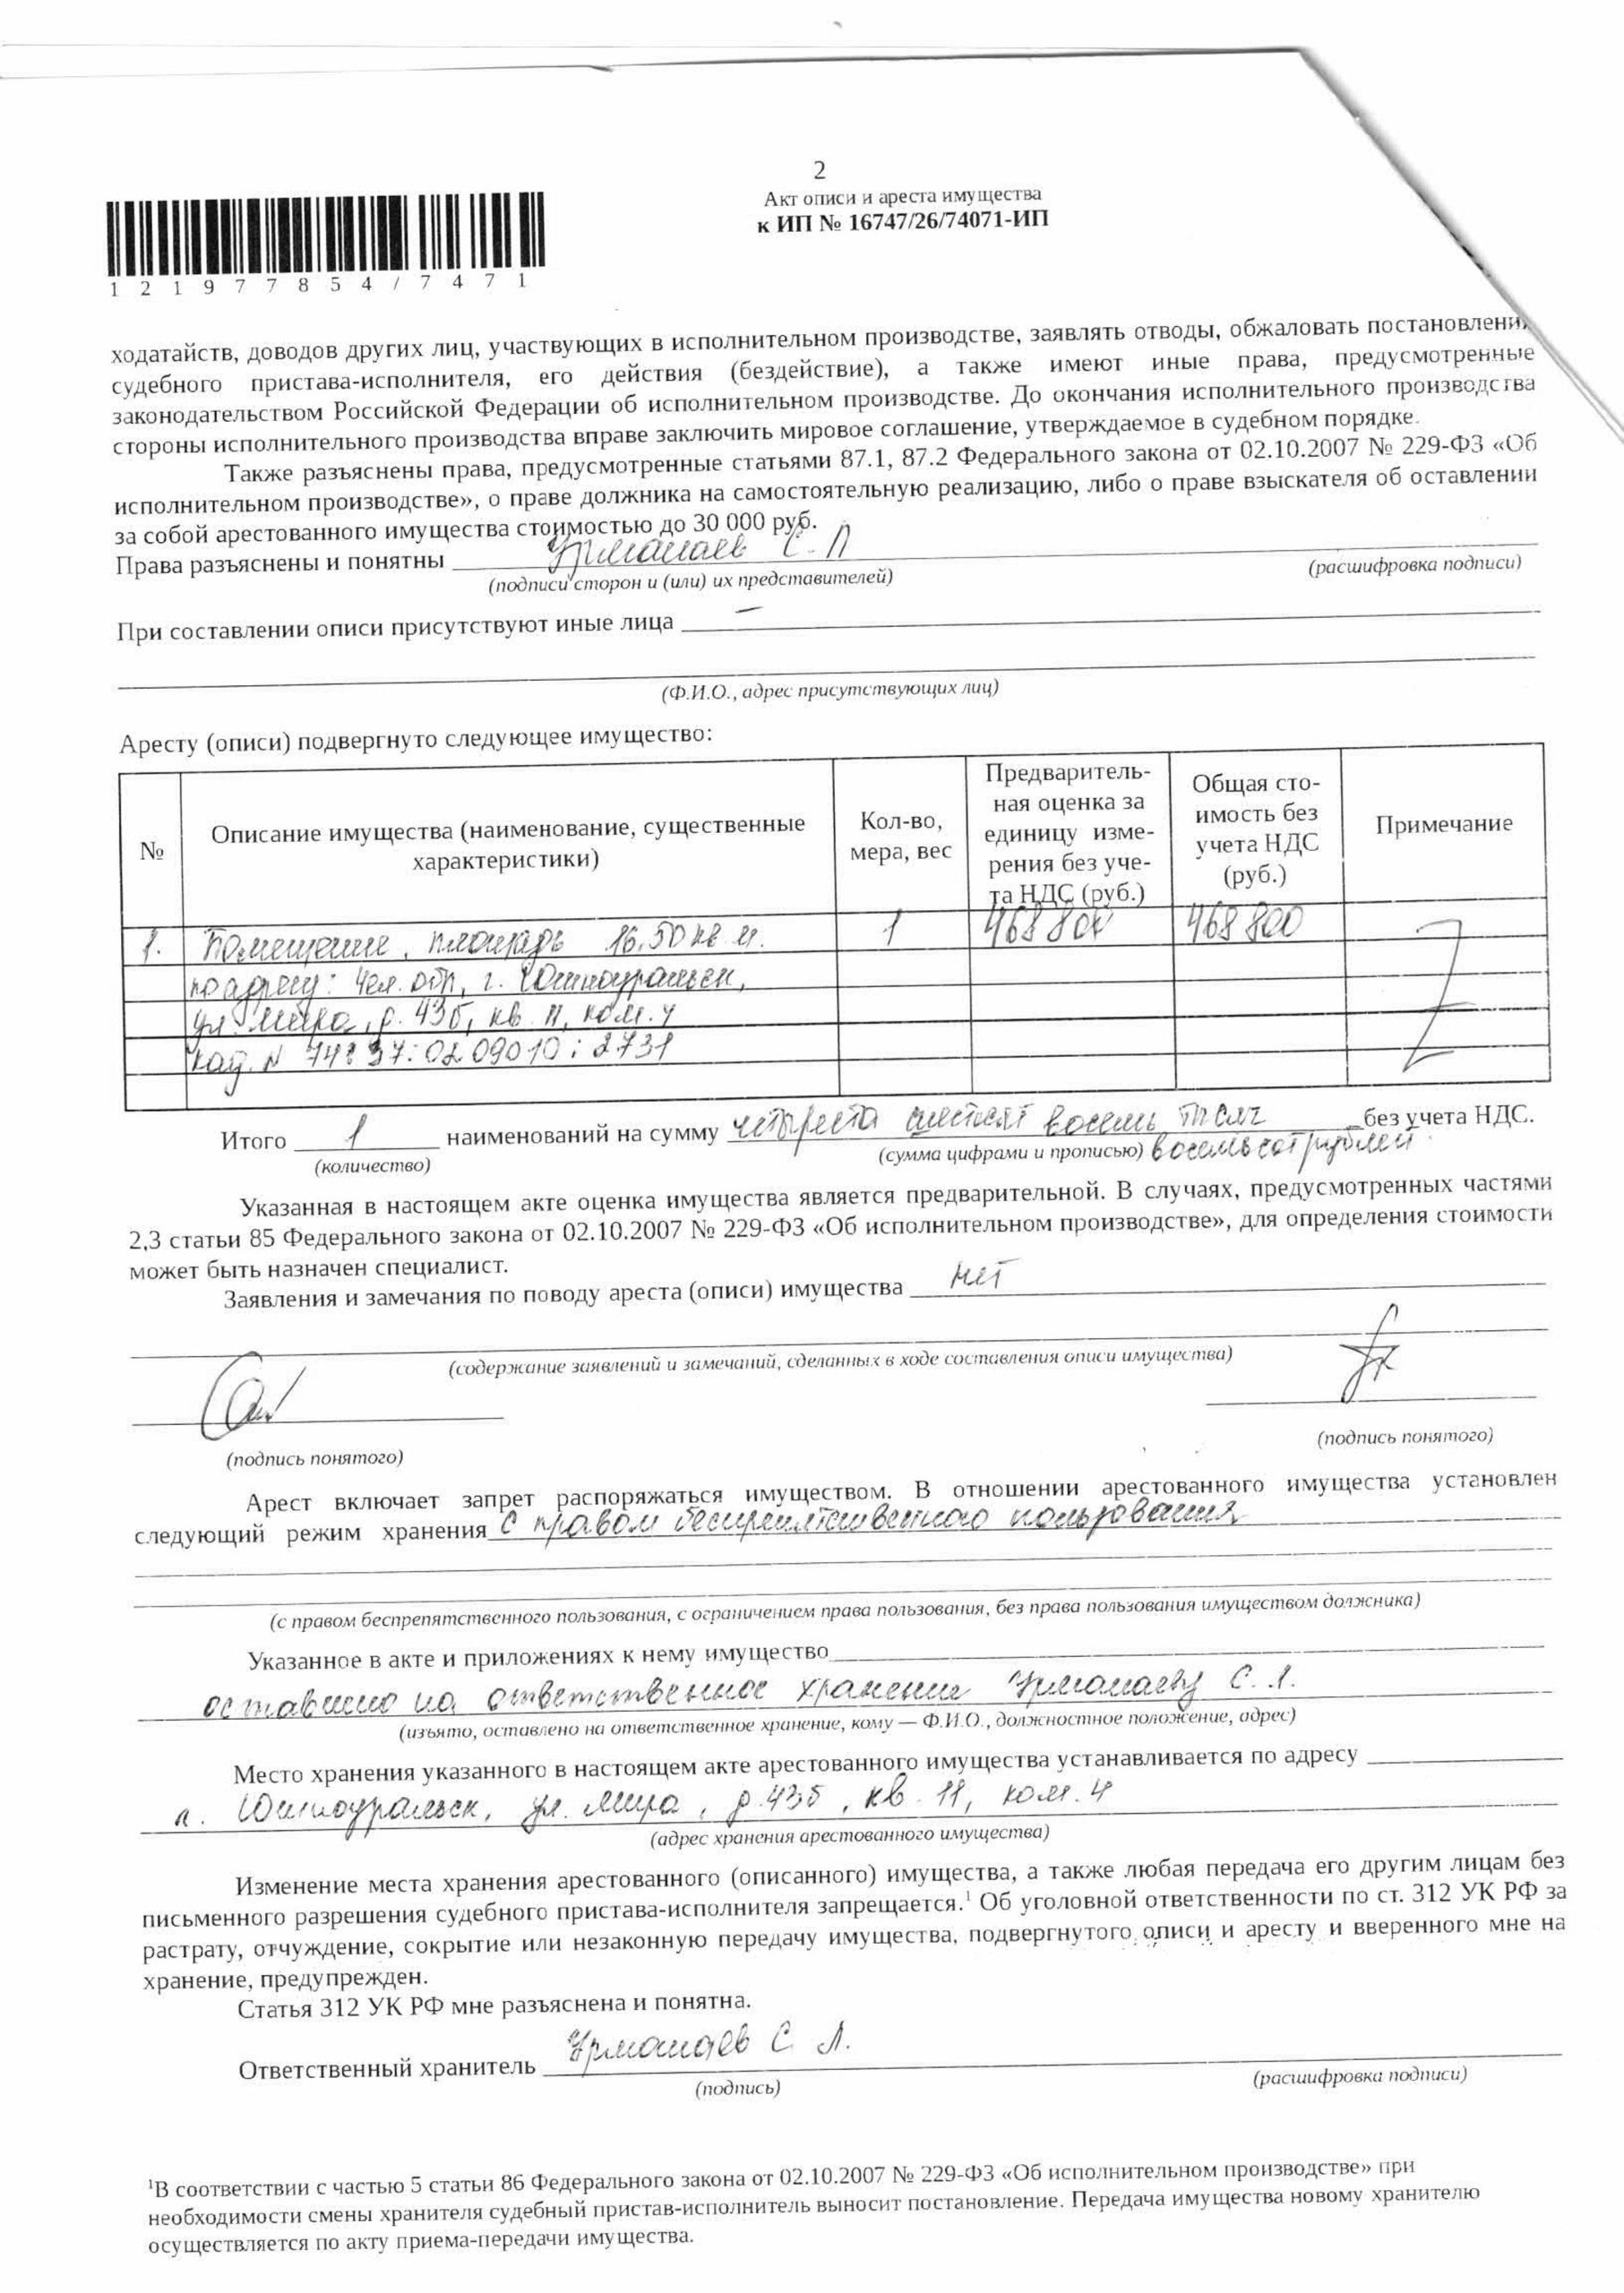 2
Акт описи и ареста имущества
к ИП № 16747/26/74071-ИП
121977854/7471
ходатайств, доводов других лиц, участвующих в исполнительном производстве, заявлять отводы, обжаловать постановления
судебного пристава-исполнителя, его действия (бездействие), а также имеют иные права, предусмотренные
законодательством Российской Федерации об исполнительном производстве. До окончания исполнительного производства
стороны исполнительного производства вправе заключить мировое соглашение, утверждаемое в судебном порядке.
Также разъяснены права, предусмотренные статьями 87.1, 87.2 Федерального закона от 02.10.2007 № 229-ФЗ «Об
исполнительном производстве», о праве должника на самостоятельную реализацию, либо о праве взыскателя об оставлении
за собой арестованного имущества стоимостью до 30 000 руб.
Права разъяснены и понятны Урманаев С. Л
(подписи сторон и (или) их представителей) (расшифровка подписи)
При составлении описи присутствуют иные лица –
(Ф.И.О., адрес присутствующих лиц)
Аресту (описи) подвергнуто следующее имущество:
№ Описание имущества (наименование, существенные характеристики) Кол-во, мера, вес Предваритель-ная оценка за единицу изме-рения без уче-та НДС (руб.) Общая сто-имость без учета НДС (руб.) Примечание
1. Помещение, площадь 16,50 кв.м. 1 468 800 468 800
по адресу: Чел. обл, г. Южноуральск,
ул. Мира, д. 43б, кв. 11, ком. 4
кад. N 74:37:0209010:2731
Итого 1 наименований на сумму четыреста шестьсят восемь тысяч без учета НДС.
(количество) (сумма цифрами и прописью) восемьсот рублей
Указанная в настоящем акте оценка имущества является предварительной. В случаях, предусмотренных частями
2,3 статьи 85 Федерального закона от 02.10.2007 № 229-ФЗ «Об исполнительном производстве», для определения стоимости
может быть назначен специалист.
Заявления и замечания по поводу ареста (описи) имущества нет
(содержание заявлений и замечаний, сделанных в ходе составления описи имущества)
(подпись понятого) (подпись понятого)
Арест включает запрет распоряжаться имуществом. В отношении арестованного имущества установлен
следующий режим хранения с правом беспрепятственного пользования
(с правом беспрепятственного пользования, с ограничением права пользования, без права пользования имуществом должника)
Указанное в акте и приложениях к нему имущество
оставлено на ответственное хранение Урманаеву С. Л.
(изъято, оставлено на ответственное хранение, кому — Ф.И.О., должностное положение, адрес)
Место хранения указанного в настоящем акте арестованного имущества устанавливается по адресу
г. Южноуральск, ул. Мира, д. 43б, кв. 11, ком. 4
(адрес хранения арестованного имущества)
Изменение места хранения арестованного (описанного) имущества, а также любая передача его другим лицам без
письменного разрешения судебного пристава-исполнителя запрещается.¹ Об уголовной ответственности по ст. 312 УК РФ за
растрату, отчуждение, сокрытие или незаконную передачу имущества, подвергнутого описи и аресту и вверенного мне на
хранение, предупрежден.
Статья 312 УК РФ мне разъяснена и понятна.
Ответственный хранитель Урманаев С. Л.
(подпись) (расшифровка подписи)
¹В соответствии с частью 5 статьи 86 Федерального закона от 02.10.2007 № 229-ФЗ «Об исполнительном производстве» при
необходимости смены хранителя судебный пристав-исполнитель выносит постановление. Передача имущества новому хранителю
осуществляется по акту приема-передачи имущества.